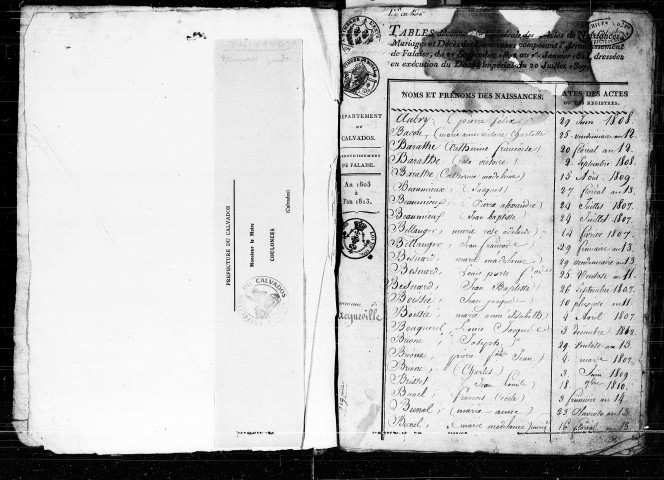 PREFECTURE DU CALVADOS
Monsieur le Maire
COULONCES
(Calvados)
CALVADOS
TABLES générale des Actes de Naissances,
Mariages et Décès des Communes composant l'Arrondissement
de Falaise, du 21 Septembre 1802 au 1.er Janvier 1813, dressées
en exécution du Décret Impérial du 20 Juillet 1807.
DÉPARTEMENT
DU
CALVADOS.
ARRONDISSEMENT
DE FALAISE.
AN 1803
à
l'an 1813.
acqueville
NOMS ET PRÉNOMS DES NAISSANCES. DATES DES ACTES
OU DES REGISTRES.
Aubry, (pierre félix 29 Juin 1808.
Bacon, (marie anne victoire Charlotte 25 vendemiaire an 12.
Baratte (Catherine françoise) 20 floreal an 12.
Baratte (rose victoire) 2 Septembre 1808.
Baratte (Catherine madelaine) 15 Août 1809.
Beaumieux, (Jacques) 27 floreal an 13.
Beaumieux, (Pierre alexandre) 24 Juillet 1807.
Beaumieux, (Jean baptiste) 24 Juillet 1807.
Bellanger, marie rose adelaide) 14 fevrier 1807.
Bellanger, Jean francois) 29 frimaire an 13.
Besnard, marie madelaine) 29 vendemiaire an 13.
Besnard, Louis pierre 25 Ventose an 11.
Besnard, Jean Baptiste) 26 Septembre 1807.
Boissée, (Jean jacques) 10 pluviose an 11
Boissée, marie anne elisabeth) 4 Avril 1807.
Bougueret, Louis Jacques 3 decembre
Brione, Joseph) 29 Ventose an 13.
Brione, pierre Jean) 4 mars 1807.
Brione, (Charles) 3 Juin 1809
Brisset, Jean Louis) 18 1810.
Bunel, françois Cécile) 3 frimaire an 14.
Bunel, (marie anne) 23 an 13
Bunel, marie madelaine 16 floreal an 13